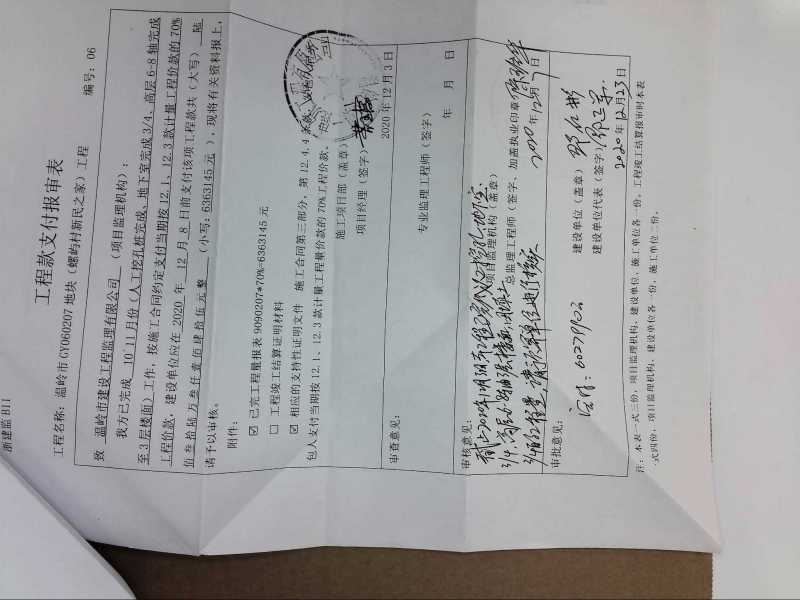 浙建监 B11
工程款支付报审表
工程名称：温岭市 GY060207 地块（螺屿村新民之家）工程 编号：06
致 温岭市建设工程监理有限公司 （项目监理机构）：
我方已完成 10~11月份（人工挖孔桩完成、地下室完成 3/4、高层 6-8 轴完成
至 3 层楼面）工作，按施工合同约定支付当期按 12.1、12.3 款计量工程价款的 70%
工程价款，建设单位应在 2020 年 12 月 8 日前支付该项工程款共（大写） 陆
佰叁拾陆万叁仟壹佰肆拾伍元整 （小写：6363145 元），现将有关资料报上，
请予以审核。
附件：
☑ 已完工程量报表 9090207*70%=6363145 元
□ 工程竣工结算证明材料
☑ 相应的支持性证明文件 施工合同第三部分，第 12.4.4 条款：
包人支付当期按 12.1、12.3 款计量工程量价款的 70%工程价款。
施工项目部（盖章）
项目经理（签字）
2020 年 12 月 3 日
审查意见：
专业监理工程师（签字）
年 月 日
审核意见：
项目监理机构（盖章）
总监理工程师（签字、加盖执业印章）
2020 年 12 月 7 日
审批意见：
60279902
建设单位（盖章）
建设单位代表（签字）
2020 年 12 月 23 日
注：本表一式三份，项目监理机构、建设单位、施工单位各一份。工程竣工结算报审时本表
一式四份，项目监理机构、建设单位各一份，施工单位二份。